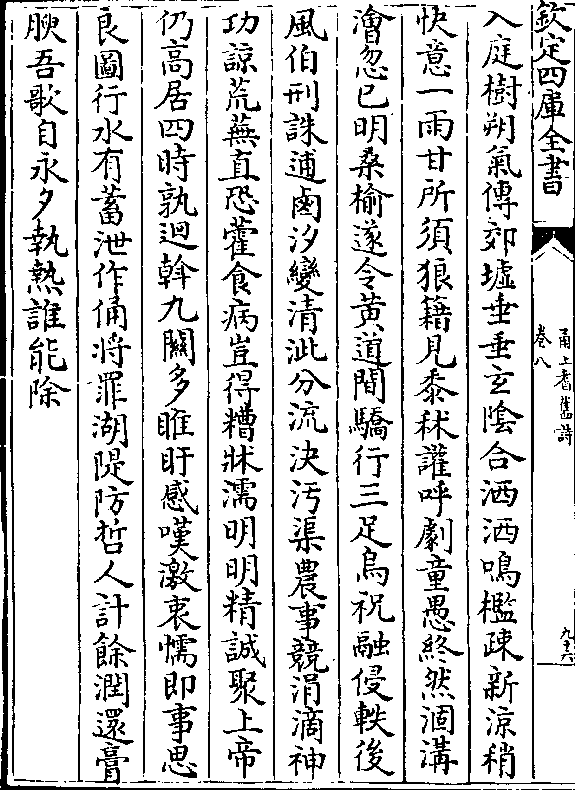 欽定四庫全書
甬上耆舊詩
卷八
九十六
入庭樹朔氣傳郊墟垂垂玄陰合洒洒鳴檻疎新涼稍
快意一雨甘所須狼籍見黍秫讙呼劇童愚終然涸溝
澮忽已明桑榆遂令黄道間驕行三足烏祝融侵軼後
風伯刑誅逋鹵汐變清泚分流決汚渠農事競涓滴神
功諒荒蕪直恐藿食病豈得糟牀濡明明精誠聚上帝
仍高居四時孰迴斡九關多睢盱感嘆激衷懦即事思
良圖行水有蓄泄作俑将罪湖隄防哲人計餘潤還膏
腴吾歌自永夕執熱誰能除